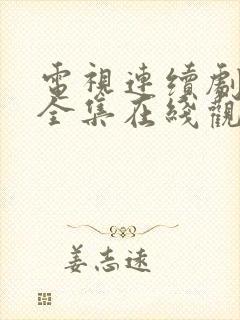 電視連續劇
全集在綫觀
姜志遠